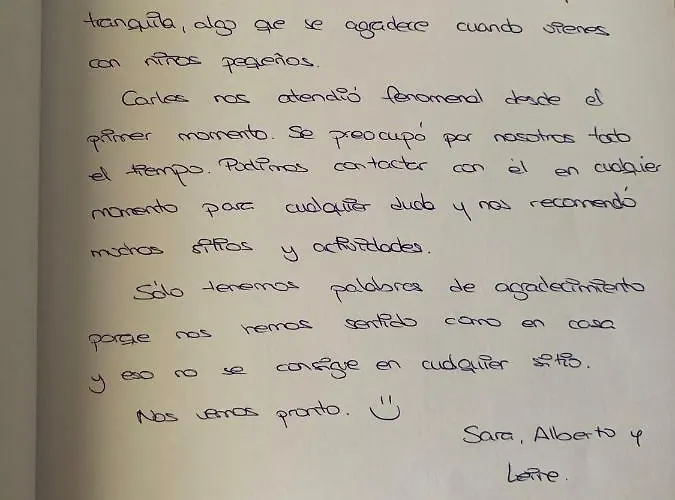 tranquila, algo qe se agadece cuando vienes
con niños peqeños.
Carles nos atendió fenomenal desde el
primer momento. Se preocupó por nosotros todo
el tiempo. Podimos contactar con él en cualqier
momento para cualquier duda y nos recomendó
muchos sitios y actividades.
Sólo tenemos palabras de agadecimiento
porqe nos hemos sentido como en casa
y eso no se consigue en cualquier sitio.
Nos vemos pronto.
Sara, Alberto y
Leire.